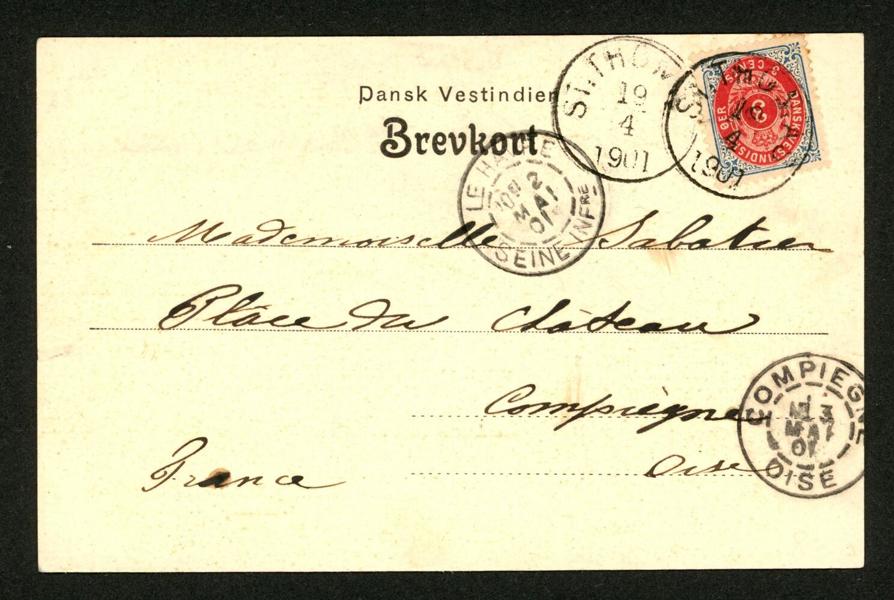 Dansk Vestindien
Brevkort
ST. THOMAS
19
4
1901
ST. THOMAS
19
4
1901
3 CENTS
DANSK VESTINDISKE ØER
3
LE HAVRE
2
MAI
01
SEINE INFRE
Mademoiselle Sabatier
Place du Château
Compiègne
Oise
France
COMPIEGNE
3
MAI
01
OISE